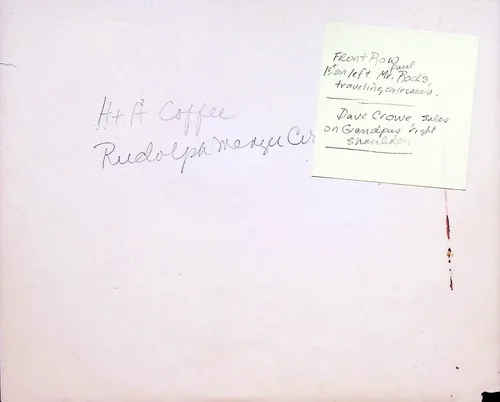 H+A Coffee
Rudolph
Front Row
Paul
1st on left Mr. Rocks,
traveling salesman.
Dave Crowe, sales
on Grandpas right
shoulder